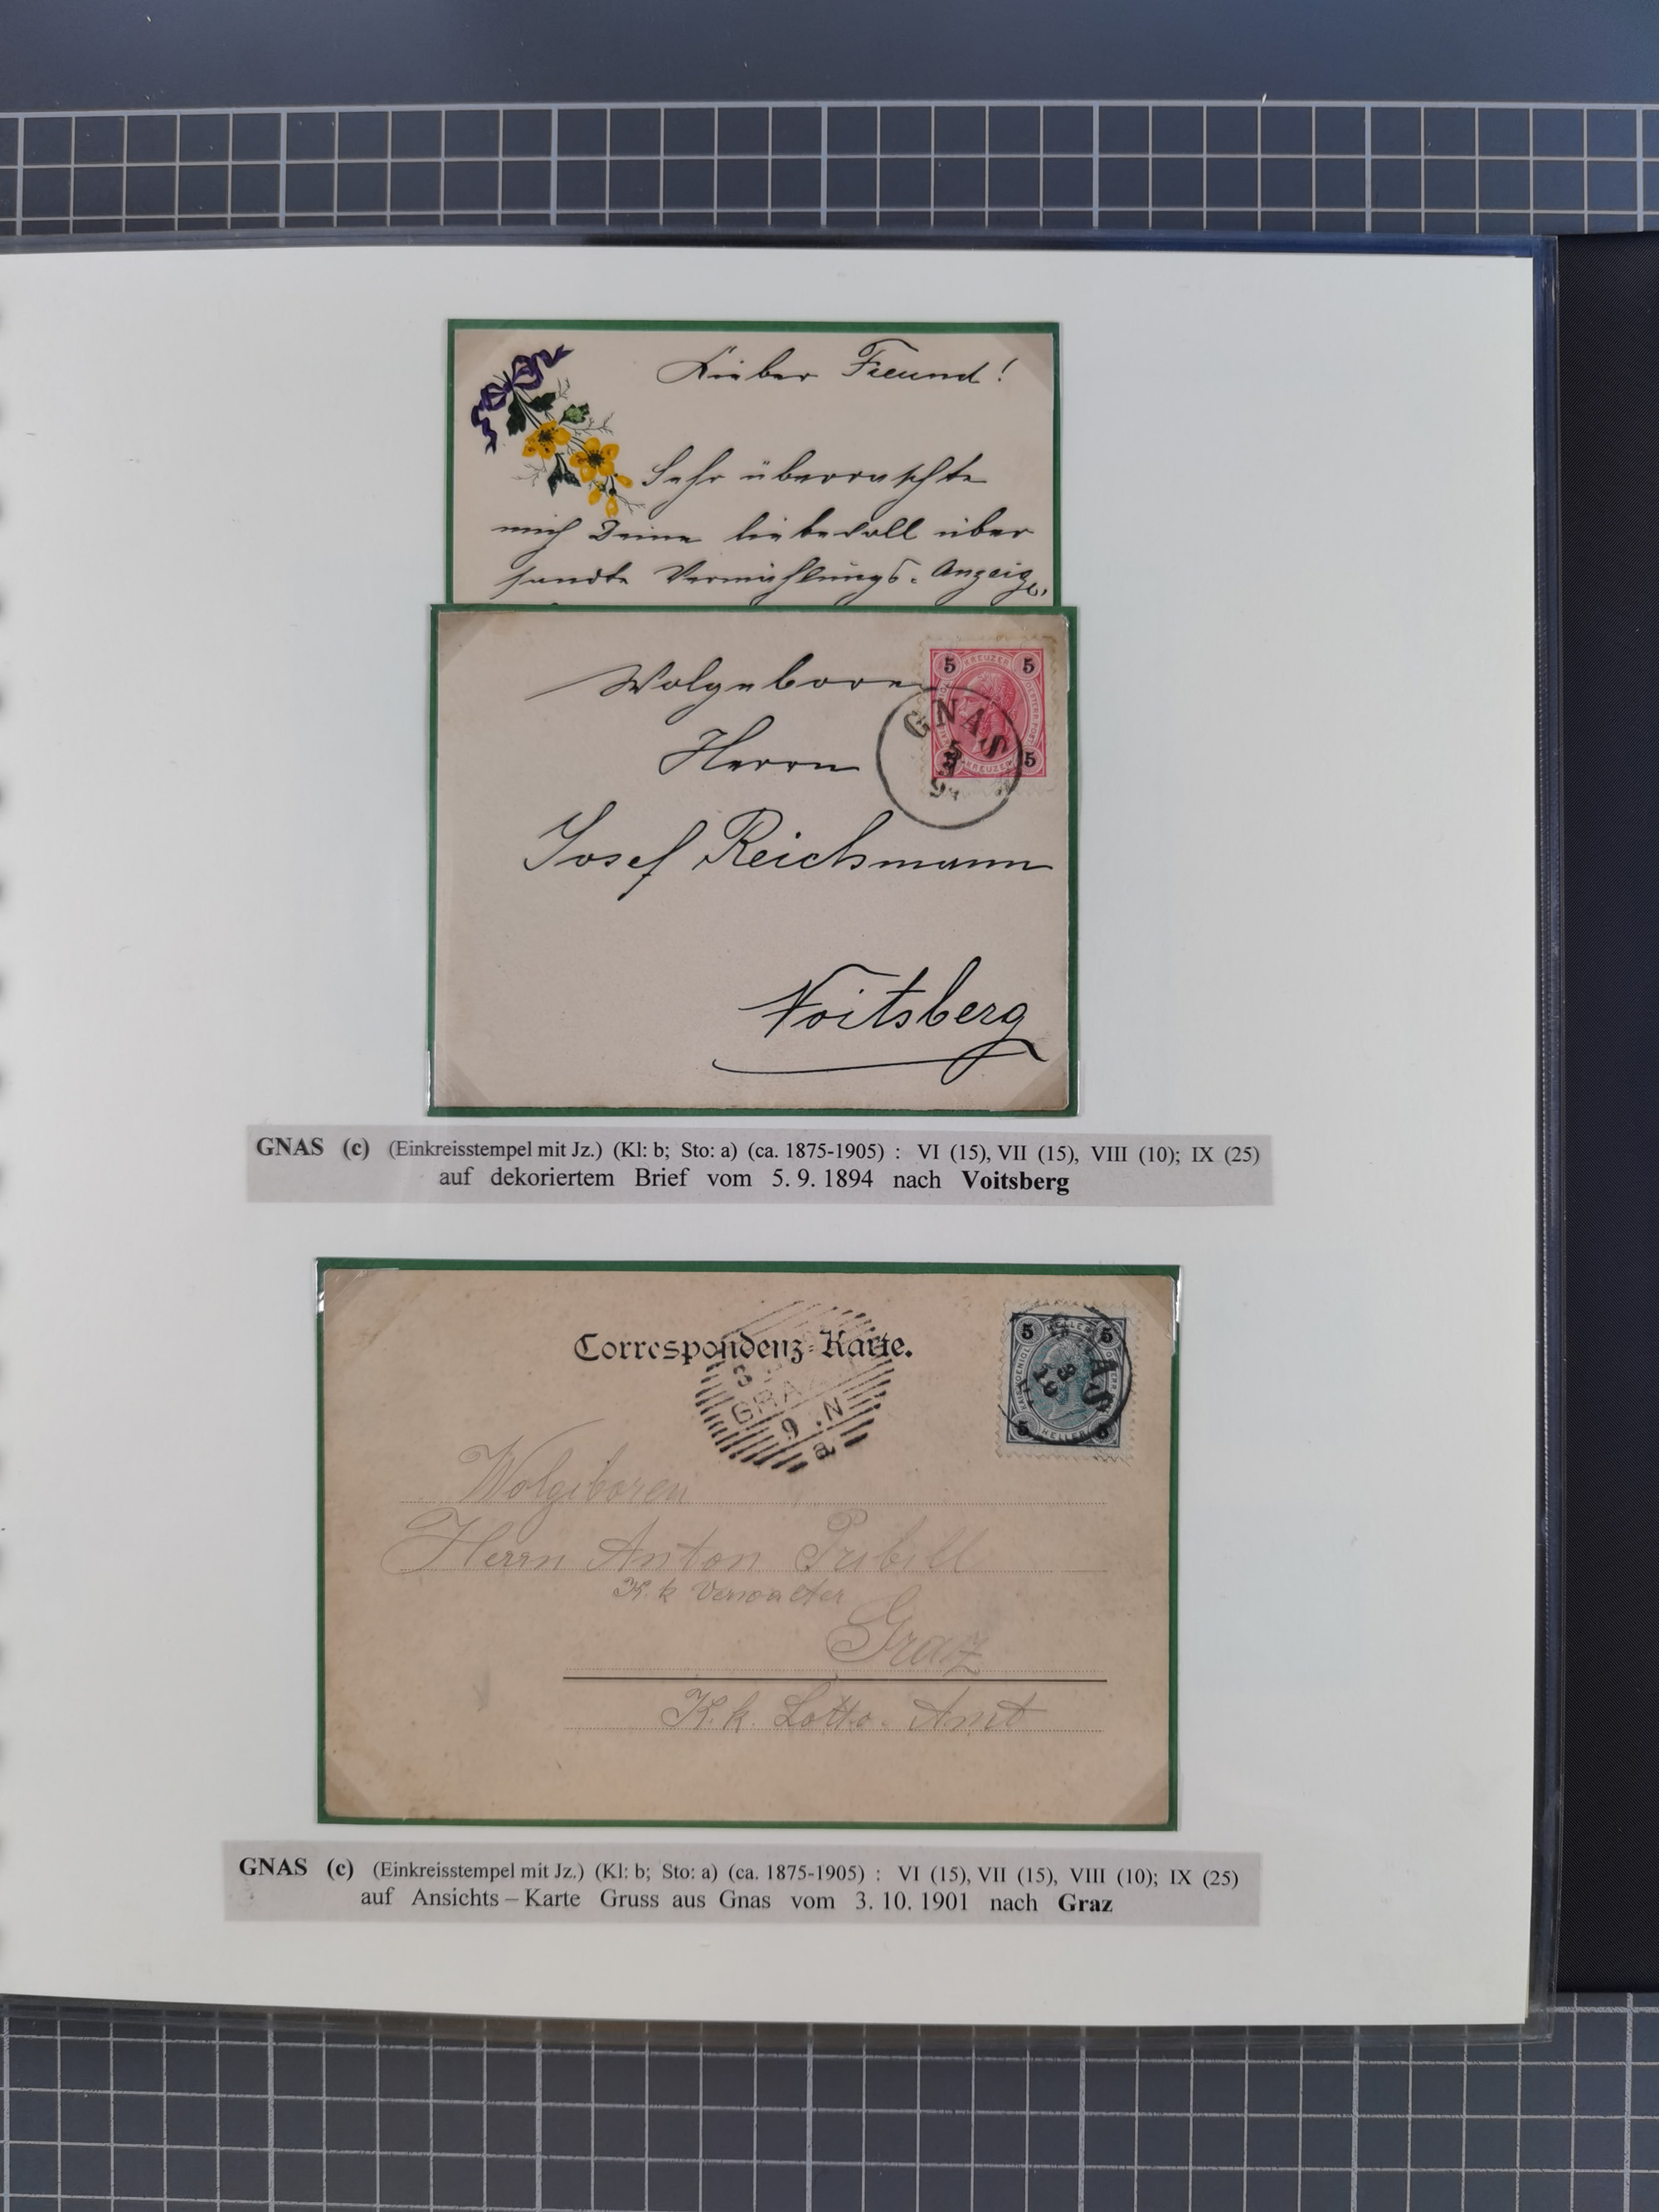 Lieber Freund!
Sehr überraschte
mich Deine liebevoll über
sandte Vermählungs-Anzeige,
5 KREUZER 5
Wolgeboren
GNAS
5
9
94
5 KREUZER 5
Herrn
Josef Reichmann
Voitsberg
GNAS (c) (Einkreisstempel mit Jz.) (Kl: b; Sto: a) (ca. 1875-1905) : VI (15), VII (15), VIII (10); IX (25)
auf dekoriertem Brief vom 5. 9. 1894 nach Voitsberg
Correspondenz-Karte.
5 HELLER 5
GRAZ
9 . N
a
5 HELLER 5
Wolgeboren
Herrn Anton Pribill
K. k Verwalter
Graz
K. k. Lotto-Amt
GNAS (c) (Einkreisstempel mit Jz.) (Kl: b; Sto: a) (ca. 1875-1905) : VI (15), VII (15), VIII (10); IX (25)
auf Ansichts – Karte Gruss aus Gnas vom 3. 10. 1901 nach Graz